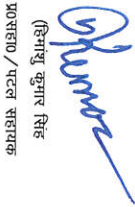 (हिमांशु कुमार सिंह)
प्र०सहा०/पटल सहायक